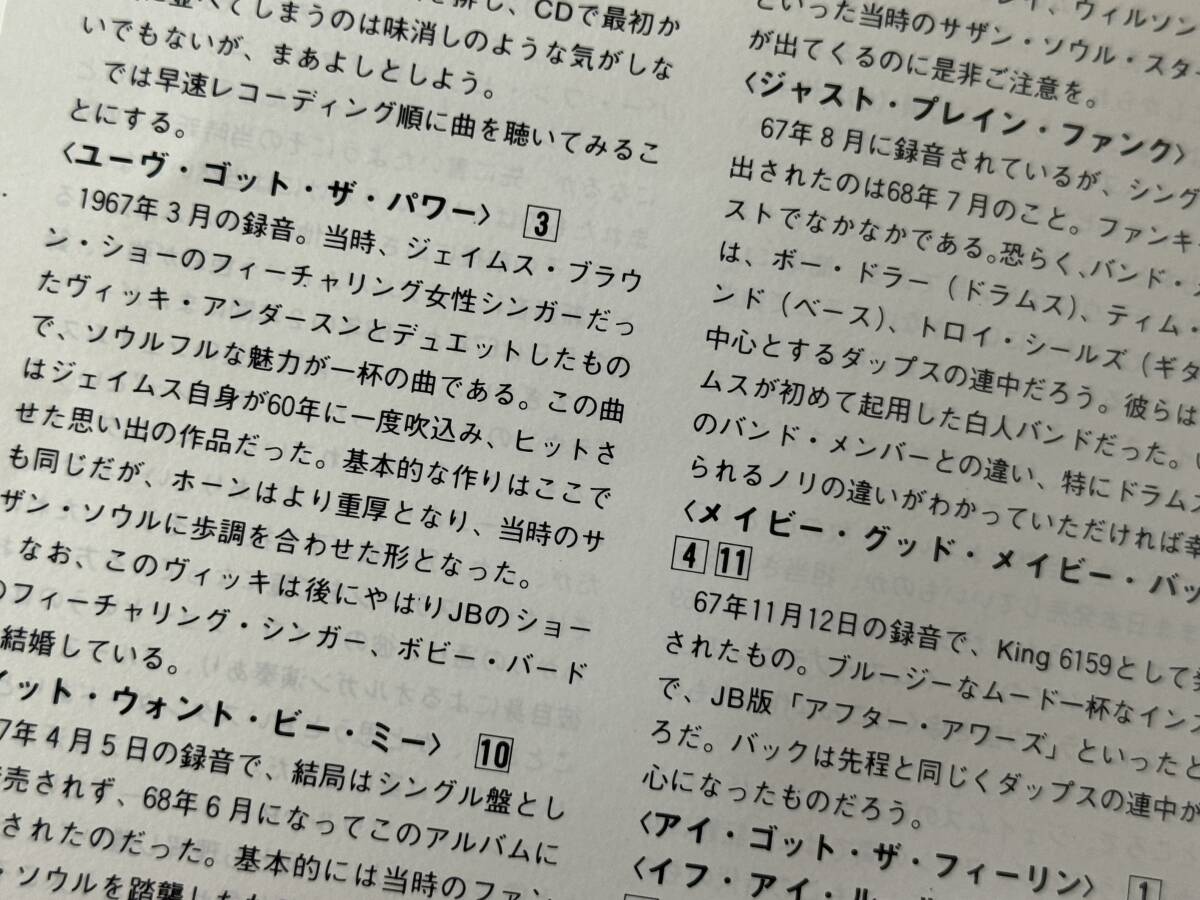 に並べてしまうのは味消しのような気がしな
排し、CDで最初か
いでもないが、まあよしとしよう。
では早速レコーディング順に曲を聴いてみるこ
とにする。
〈ユーヴ・ゴット・ザ・パワー〉 3
1967年3月の録音。当時、ジェイムス・ブラウ
ン・ショーのフィーチャリング女性シンガーだっ
たヴィッキ・アンダースンとデュエットしたもの
で、ソウルフルな魅力が一杯の曲である。この曲
はジェイムス自身が60年に一度吹込み、ヒットさ
せた思い出の作品だった。基本的な作りはここで
も同じだが、ホーンはより重厚となり、当時のサ
ザン・ソウルに歩調を合わせた形となった。
なお、このヴィッキは後にやはりJBのショー
のフィーチャリング・シンガー、ボビー・バード
結婚している。
ット・ウォント・ビー・ミー〉 10
7年4月5日の録音で、結局はシングル盤とし
売されず、68年6月になってこのアルバムに
されたのだった。基本的には当時のファン
・ソウルを踏襲した
イ、ウィルソン
といった当時のサザン・ソウル・スター
が出てくるのに是非ご注意を。
〈ジャスト・プレイン・ファンク〉
67年8月に録音されているが、シング
出されたのは68年7月のこと。ファンキ
ストでなかなかである。恐らく、バンド・メ
は、ボー・ドラー（ドラムス）、ティム・
ンド（ベース）、トロイ・シールズ（ギタ
中心とするダップスの連中だろう。彼らは
ムスが初めて起用した白人バンドだった。
のバンド・メンバーとの違い、特にドラムス
られるノリの違いがわかっていただければ幸
〈メイビー・グッド・メイビー・バッ
4 11
67年11月12日の録音で、King 6159として発
されたもの。ブルージーなムード一杯なインス
で、JB版「アフター・アワーズ」といったと
ろだ。バックは先程と同じくダップスの連中が
心になったものだろう。
〈アイ・ゴット・ザ・フィーリン〉 1
〈イフ・アイ・ル